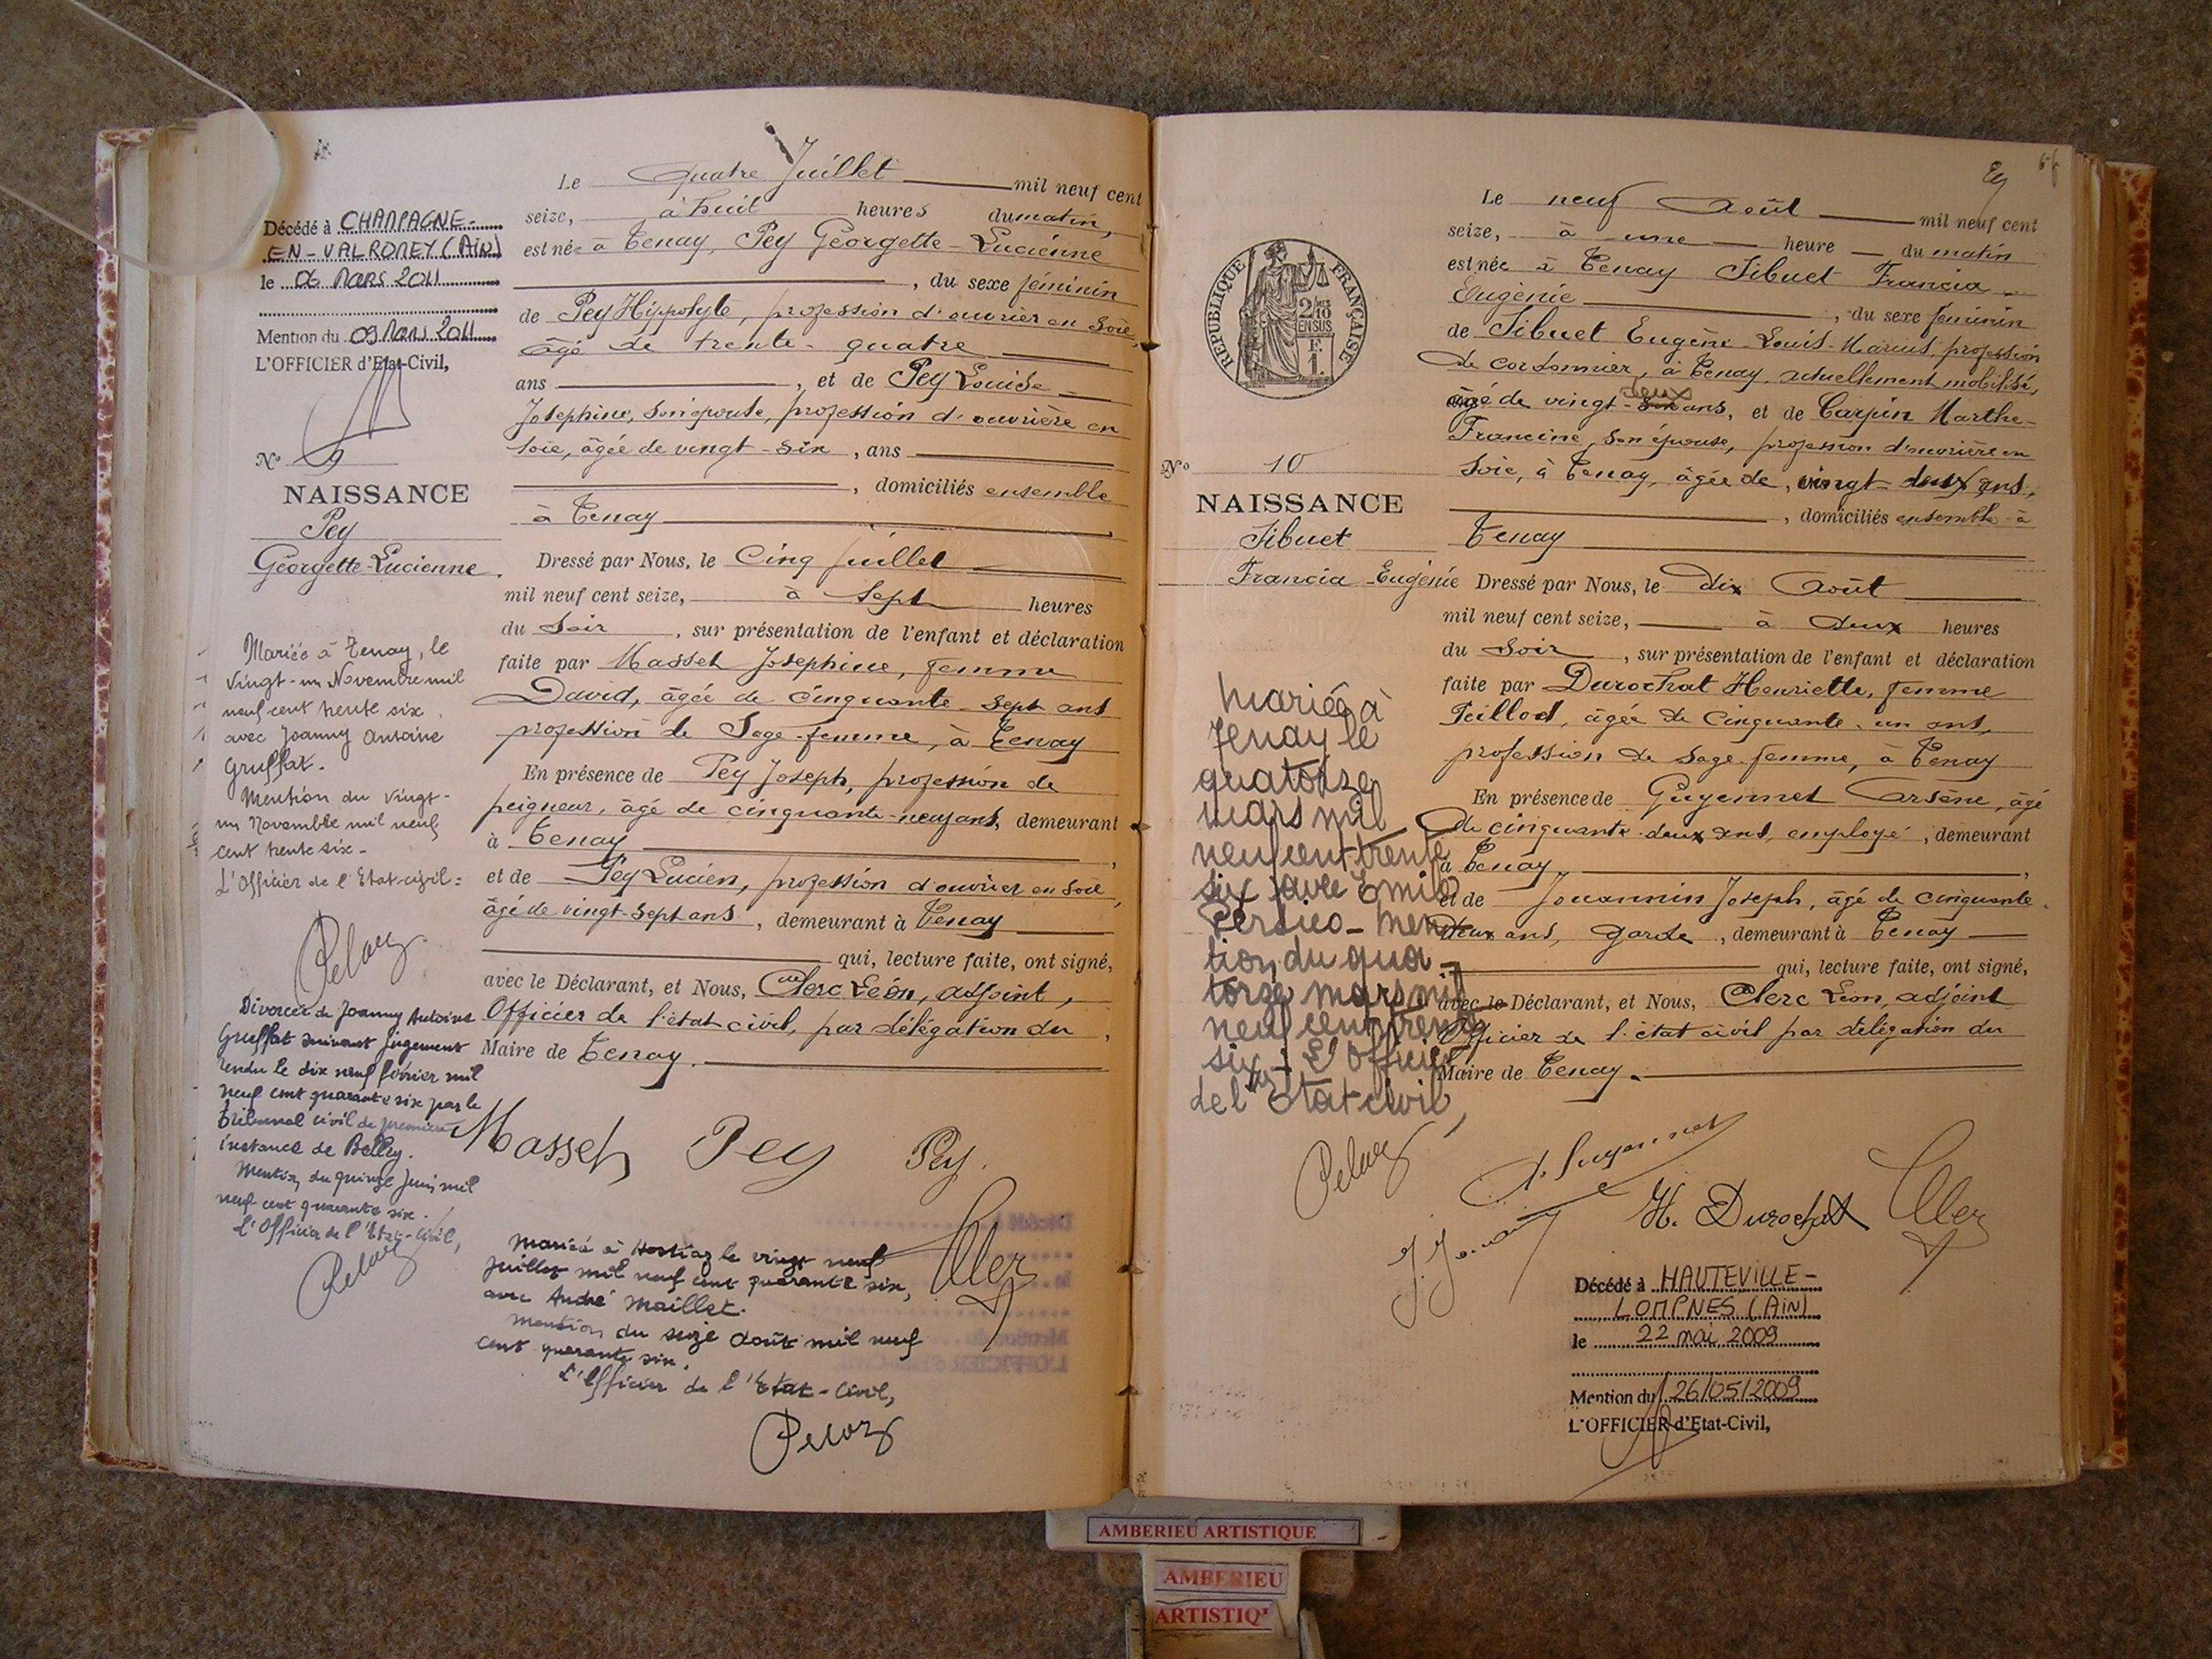 Décédé à CHAMPAGNE-
EN-VALROMEY (AIN)
le 06 MARS 2011
Mention du 09 MARS 2011
L'OFFICIER d'Etat-Civil,
N° 9
NAISSANCE
Pey
Georgette-Lucienne
Mariée à Tenay, le
vingt-un Novembre mil
neuf cent trente six
avec Joanny Antoine
Gruffat.
Mention du vingt-
un Novembre mil neuf
cent trente six-
L'Officier de l'Etat-civil=
Pelaz
Divorcée de Joanny Antoine
Gruffat suivant jugement
rendu le dix neuf février mil
neuf cent quarante six par le
tribunal civil de première
instance de Belley.
Mention du quinze Juin mil
neuf cent quarante six.
L'Officier de l'Etat-Civil,
Pelaz
Le quatre Juillet mil neuf cent
seize, à huit heures du matin,
est née à Tenay, Pey Georgette-Lucienne
, du sexe féminin
de Pey Hippolyte, profession d'ouvrier en soie
âgé de trente-quatre
ans , et de Pey Louise
Joséphine, son épouse, profession d'ouvrière en
soie, âgée de vingt-six , ans
, domiciliés ensemble
à Tenay
Dressé par Nous, le Cinq Juillet
mil neuf cent seize, à sept heures
du Soir , sur présentation de l'enfant et déclaration
faite par Masset Joséphine, femme
David, âgée de cinquante-sept ans
profession de Sage-femme, à Tenay
En présence de Pey Joseph, profession de
peigneur, âgé de cinquante-neuf ans, demeurant
à Tenay ,
et de Pey Lucien, profession d'ouvrier en soie,
âgé de vingt-sept ans , demeurant à Tenay
qui, lecture faite, ont signé,
avec le Déclarant, et Nous, Clerc Léon, adjoint,
Officier de l'état civil, par délégation du ,
Maire de Tenay.
Masset Pey Pey.
Clerc
Mariée à Hostiaz le vingt neuf
Juillet mil neuf cent quarante six,
avec André Maillet.
Mention du seize août mil neuf
cent quarante six.
L'Officier de l'Etat-Civil,
Pelaz
RÉPUBLIQUE FRANÇAISE
2/10
EN SUS
F.
1.
N° 10
NAISSANCE
Sibuet
Francia-Eugénie
Mariée à
Tenay le
quatorze
mars mil
neuf cent trente
six avec Emile
Persico- Men-
tion du qua-
torze mars mil
neuf cent trente
six - L'Officier
de l'Etat civil,
Pelaz
Le neuf Août mil neuf cent
seize, à une heure du matin
est née à Tenay Sibuet Francia
Eugénie , du sexe féminin
de Sibuet Eugène-Louis-Marius, profession
de cordonnier, à Tenay, actuellement mobilisé,
deux
âgé de vingt-six ans, et de Carpin Marthe-
Francine, son épouse, profession d'ouvrière en
soie, à Tenay, âgée de, vingt-deux ans,
, domiciliés ensemble à
Tenay
Dressé par Nous, le dix Août
mil neuf cent seize, à deux heures
du Soir , sur présentation de l'enfant et déclaration
faite par Durochat Henriette, femme
Peillod, âgée de cinquante-un ans,
profession de sage-femme, à Tenay
En présence de Guyennet Arsène, âgé
de cinquante-deux ans, employé , demeurant
à Tenay ,
et de Jouannin Joseph, âgé de cinquante
deux ans, garde , demeurant à Tenay
qui, lecture faite, ont signé,
avec le Déclarant, et Nous, Clerc Léon, adjoint
Officier de l'état civil par délégation du
Maire de Tenay.
A. Guyennet
H. Durochat
Clerc
Décédé à HAUTEVILLE-
LOMPNES (AIN)
le 22 mai 2009
Mention du 26/05/2009
L'OFFICIER d'Etat-Civil,
AMBERIEU ARTISTIQUE
AMBERIEU
ARTISTIQ